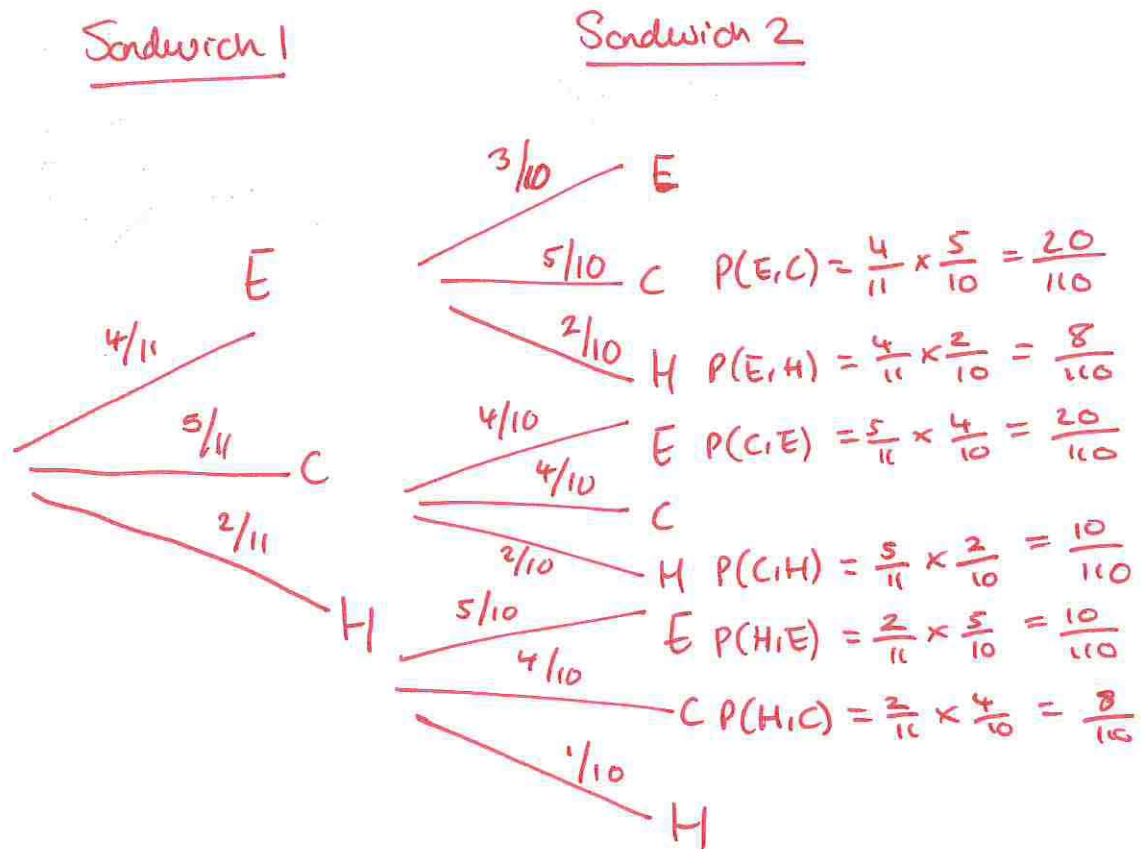 Sandwich 1 Sandwich 2
3/10 E
E 5/10 C P(E,C) = 4/11 × 5/10 = 20/110
4/11 2/10 H P(E,H) = 4/11 × 2/10 = 8/110
5/11 C 4/10 E P(C,E) = 5/11 × 4/10 = 20/110
4/10 C
2/11 2/10 H P(C,H) = 5/11 × 2/10 = 10/110
H 5/10 E P(H,E) = 2/11 × 5/10 = 10/110
4/10 C P(H,C) = 2/11 × 4/10 = 8/110
1/10 H